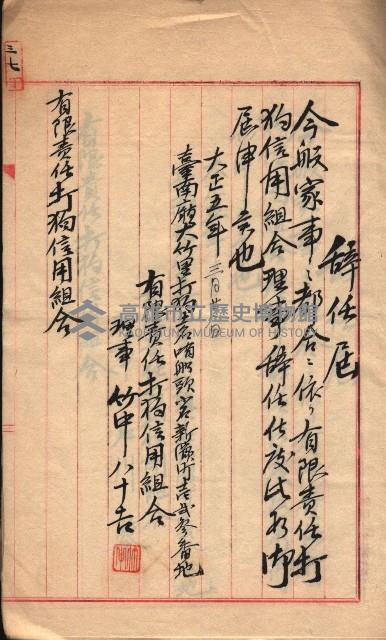 辞任届
今般家事ノ都合ニ依リ有限責任打
狗信用組合理事辞任仕度此段御
届申上候也
大正五年三月廿一日
臺南廳大竹里打狗
新濱町
番地
有限責任打狗信用組合
理事 竹中八十吉
有限責任打狗信用組合
三七
高雄市立歷史博物館
KAOHSIUNG MUSEUM OF HISTORY